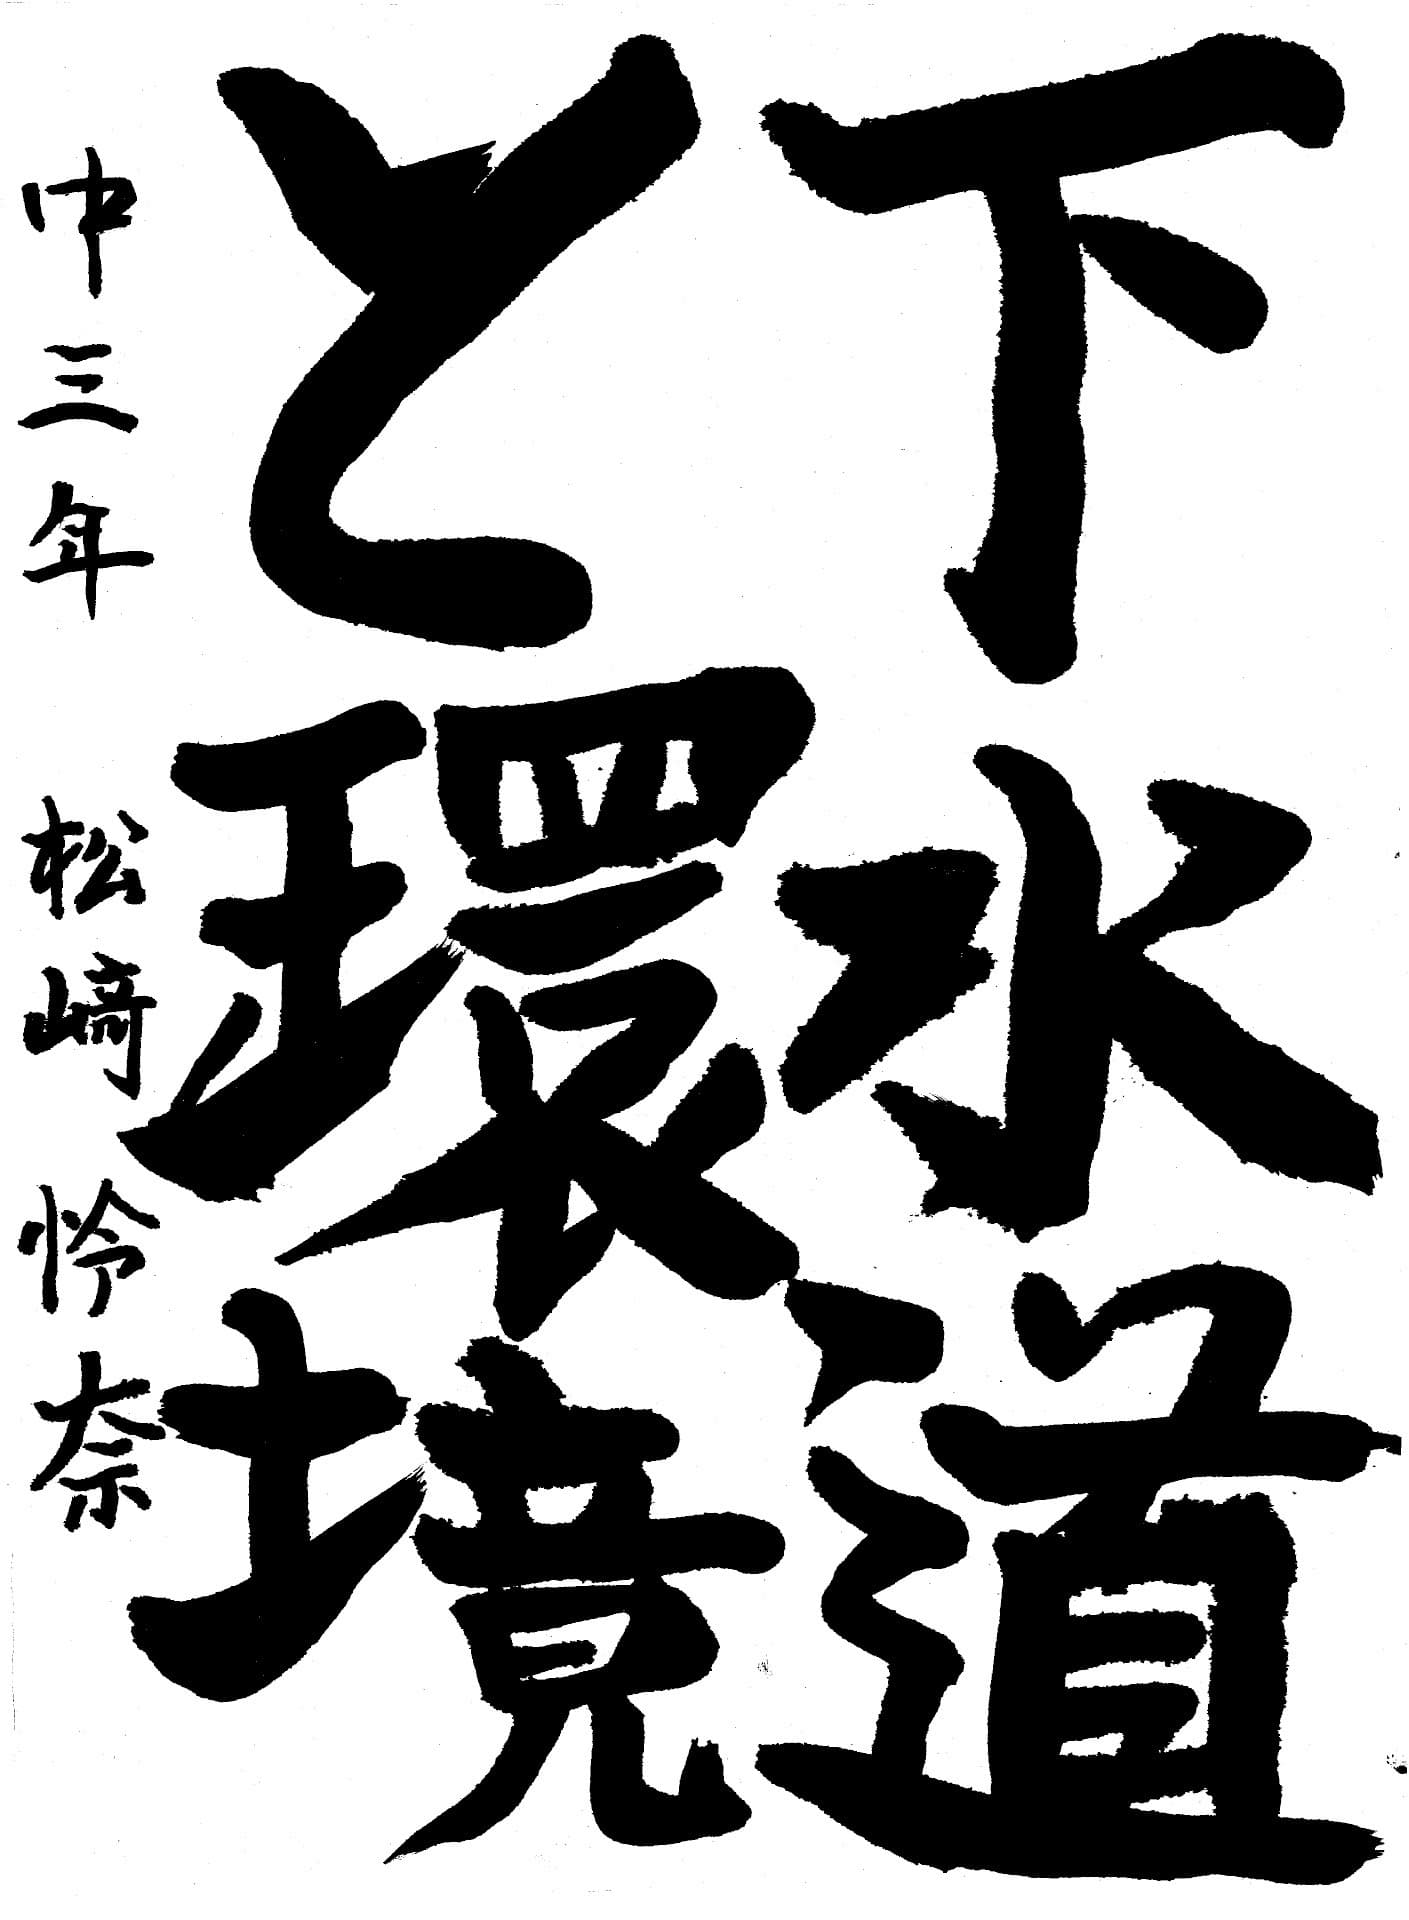 下水道
と環境
中三年 松﨑怜奈